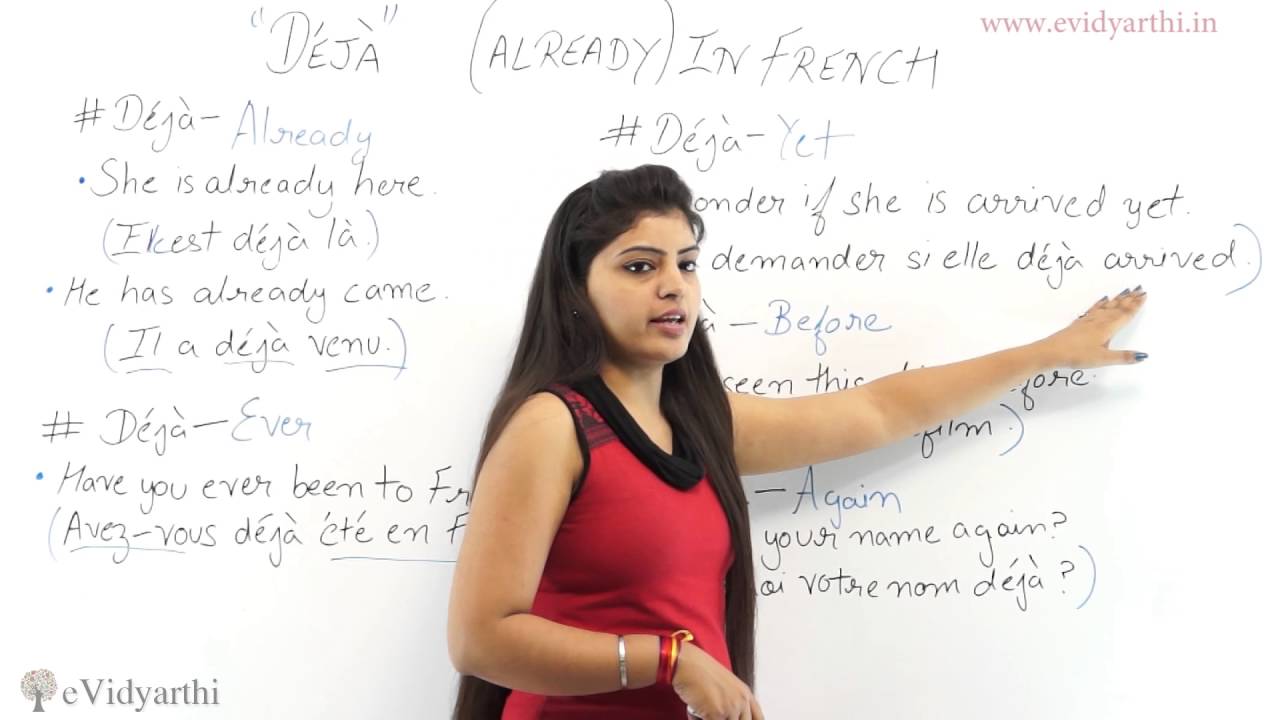 www.evidyarthi.in
"DÉJÀ" (ALREADY) IN FRENCH
# Déjà - Already
• She is already here.
est déjà là.)
• He has already came.
(Il a déjà venu.)
# Déjà - Ever
• Have you ever been to
(Avez-vous déjà été en
# Déjà - Yet
if she is arrived yet.
demander si elle déjà arrived.)
- Before
seen this
film.)
- Again
your name again?
votre nom déjà ?)
eVidyarthi